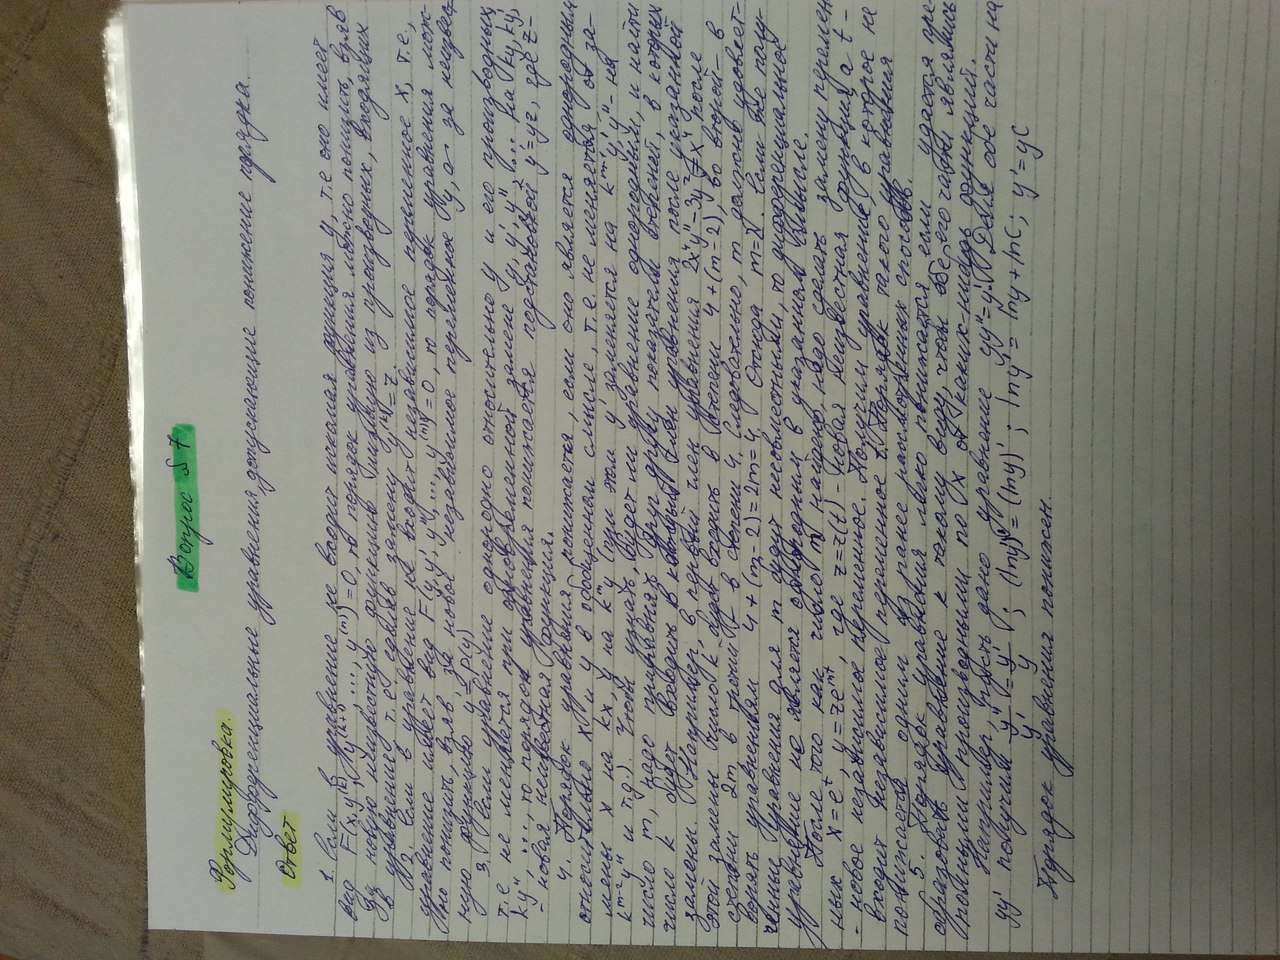 Вопрос №7
Формулировка.
Дифференциальные уравнения допускающие понижение порядка.
Ответ
1. Если в уравнение не входит искомая функция y, т.е оно имеет
вид F(x, y^(k), y^(k+1), ..., y^(n)) = 0, то порядок уравнения можно понизить, взяв
за новую неизвестную функцию низшую из производных, входящих
в уравнение т.е сделав замену y^(k) = z
2. Если в уравнение не входит независимое переменное x, т.е,
уравнение имеет вид F(y, y', y'', ..., y^(n)) = 0, то порядок уравнения мож-
но понизить, взяв за новое независимое переменное y, а за неизвест-
ную функцию y' = P(y)
3. Если уравнение однородно относительно y и его производных
т.е не меняется при одновременной замене y, y', y'', ... на ky, ky',
ky'', ..., то порядок уравнения понижается подстановкой y' = yz, где z-
- новая неизвестная функция.
4. Порядок уравнения понижается, если оно является однородным
относительно x и y в обобщенном смысле, т.е. не меняется от за-
мены x на kx, y на k^m y (при этом y' заменяется на k^(m-1) y', y'' - на
k^(m-2) y'' и т.д.). Чтобы узнать, будет ли уравнение однородным, и найти
число m, надо приравнять друг другу показатели степеней, в которых
число k будет входить в каждый член уравнения после указанной
замены. (Например, в первый член уравнения 2x⁴y'' - 3y² = x⁴ после
этой замены число k будет входить в степени 4 + (m-2), во второй - в
степени 2m, в третий - в степени 4. Следовательно, m должно удовлет-
ворять уравнениям 4 + (m-2) = 2m = 4, Отсюда m=2. Если же полу-
ченные уравнения для m будут несовместными, то дифференциальное
уравнение не является однородным в указанном смысле.
После того как число m найдено, надо сделать замену перемен-
ных x = e^t, y = ze^(mt), где z = z(t) - новая неизвестная функция, а t -
- новое независимое переменное. Получим уравнение, в которое не
входит независимое переменное t. Порядок такого уравнения
понижается одним из ранее рассмотренных способов.
5. Порядок уравнения легко понижается, если удается пре-
образовать уравнение к такому виду, чтобы обе его части являлись
полными производными по x от каких-нибудь функций.
Например, пусть дано уравнение yy'' = y'². Деля обе части на
yy' получим y''/y' = y'/y; (ln y')' = (ln y)'; ln y' = ln y + ln C; y' = yC
Порядок уравнения понижен.